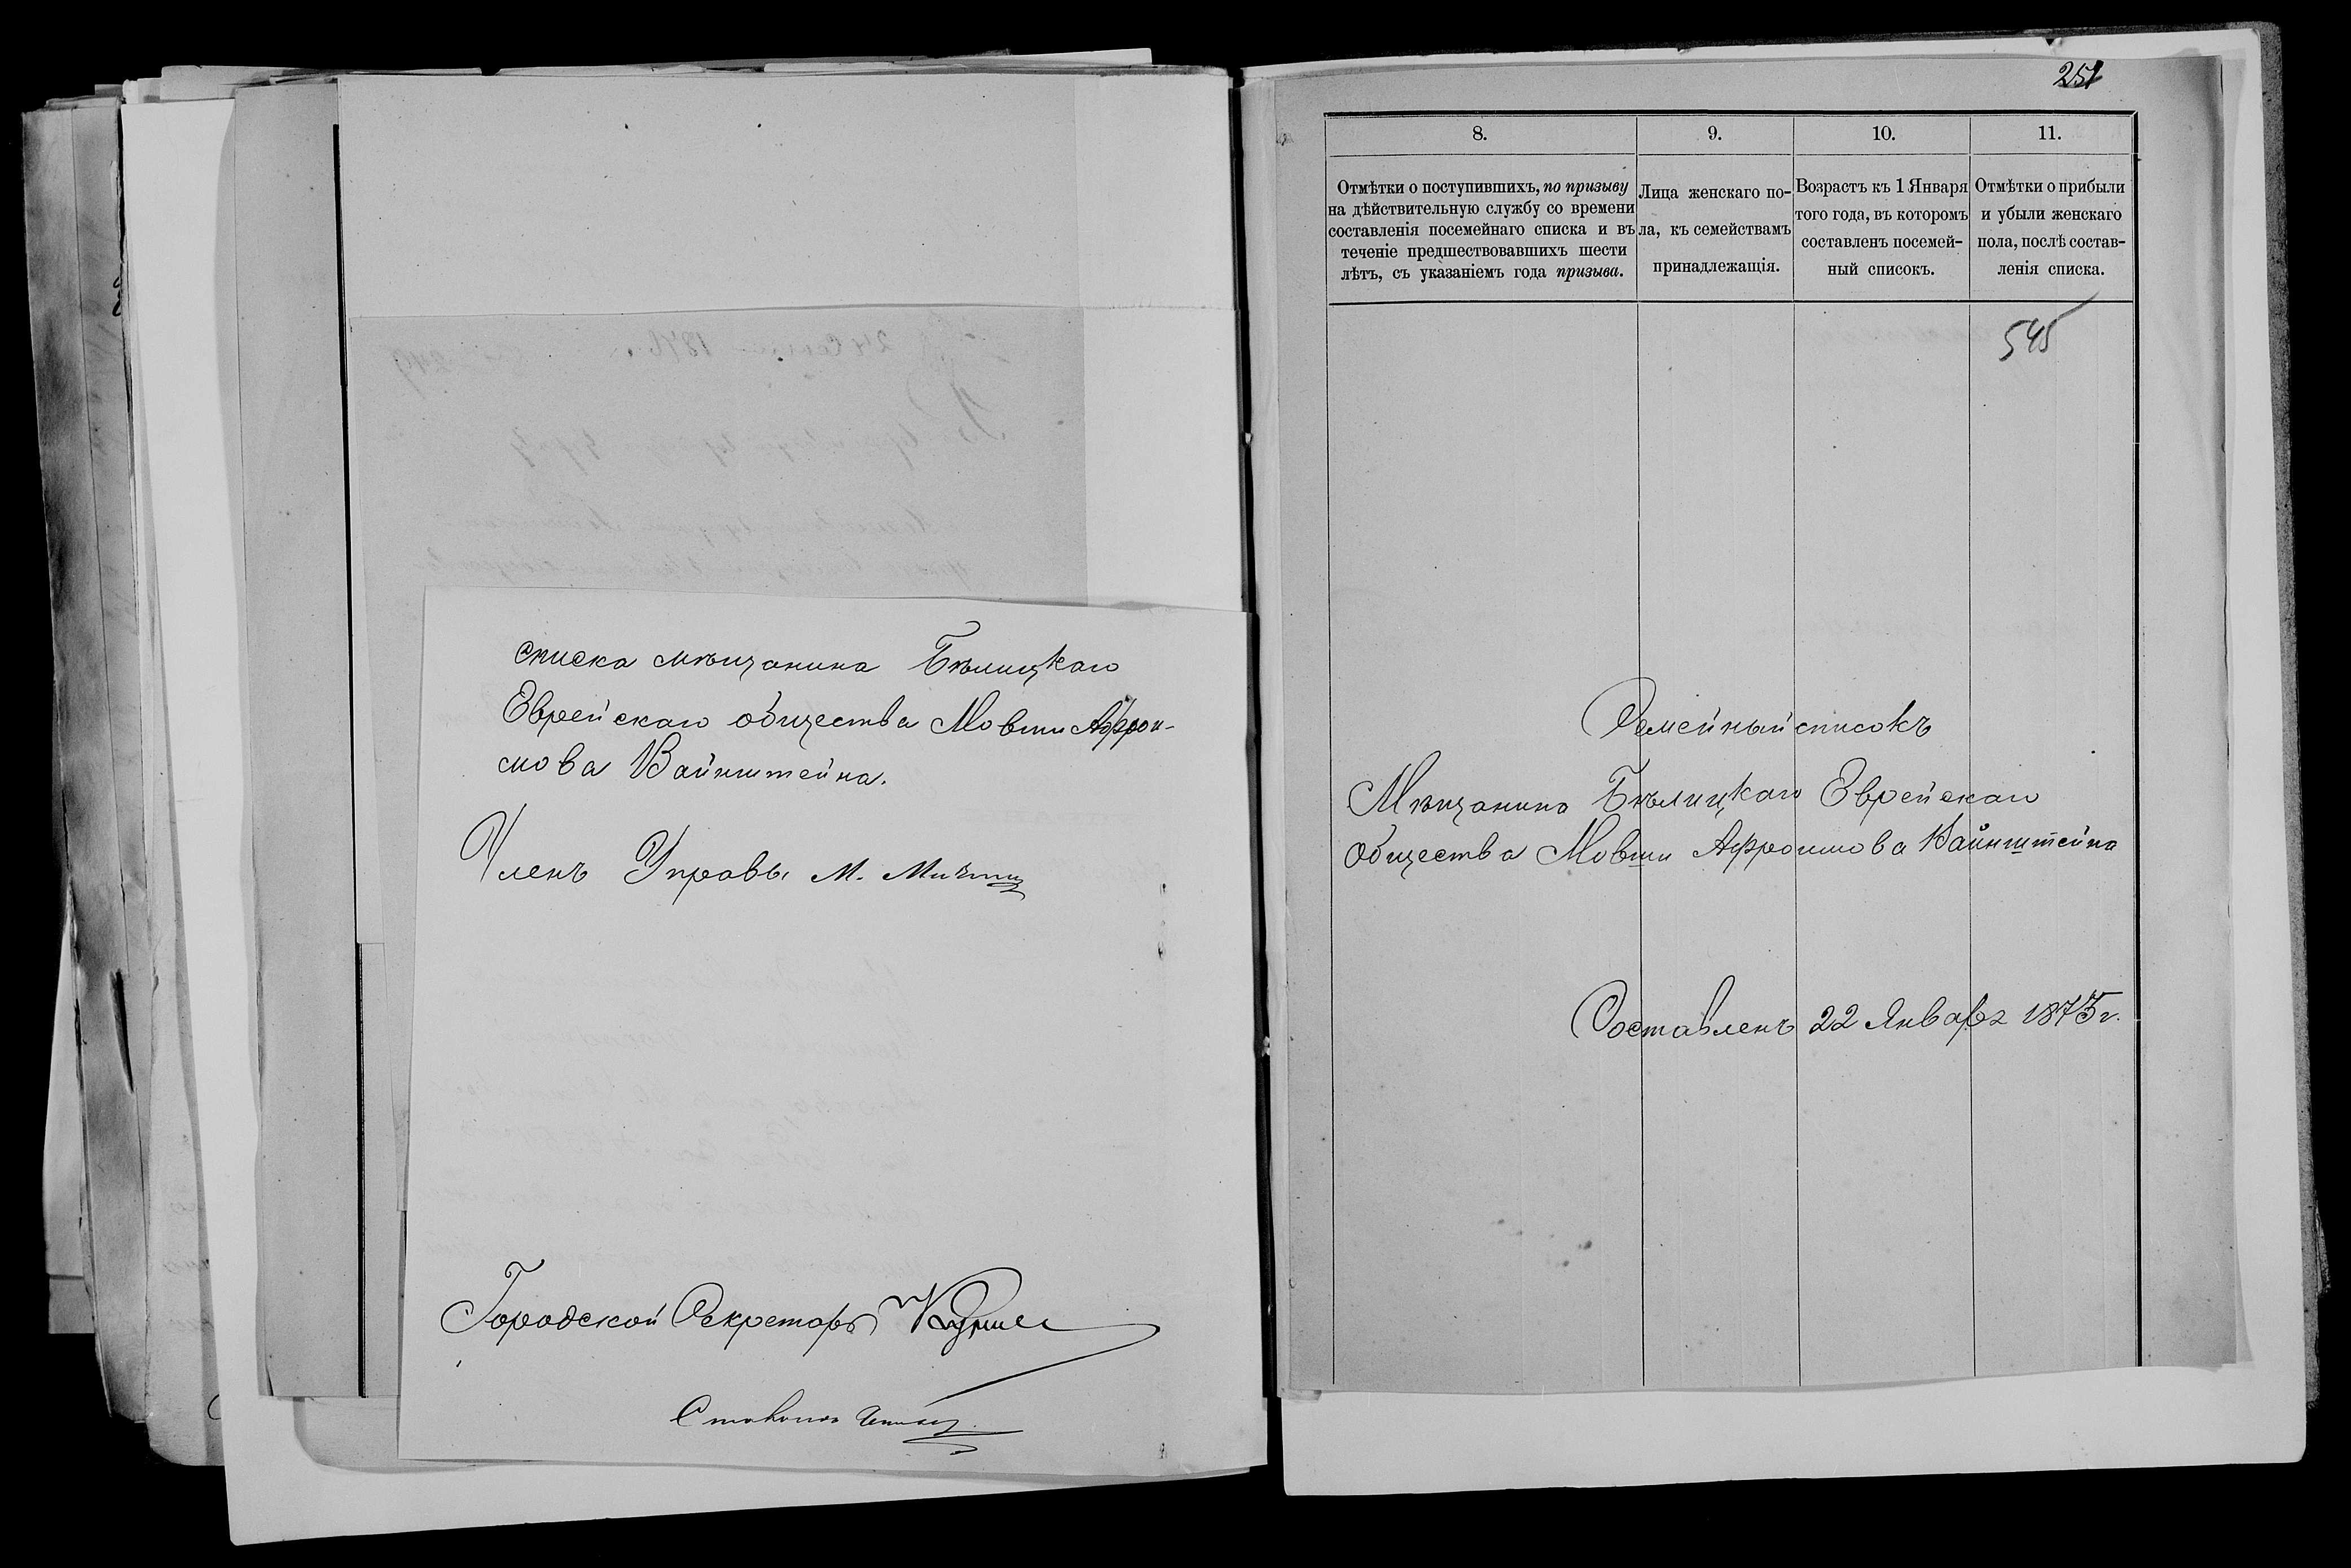 списка мѣщанина Бѣлицкаго
Еврейскаго общества Мовши Афрои-
мова Вайнштейна.
Членъ Управы М.
Городской Секретарь
251
8.
9.
10.
11.
Отмѣтки о поступившихъ, по призыву
на дѣйствительную службу со времени
составленія посемейнаго списка и въ
теченіе предшествовавшихъ шести
лѣтъ, съ указаніемъ года призыва.
Лица женскаго по-
ла, къ семействамъ
принадлежащія.
Возрастъ къ 1 Января
того года, въ которомъ
составленъ посемей-
ный списокъ.
Отмѣтки о прибыли
и убыли женскаго
пола, послѣ состав-
ленія списка.
545
Семейный списокъ
Мѣщанина Бѣлицкаго Еврейскаго
Общества Мовши Афроимова Вайнштейна
Составленъ 22 Января 1875 г.